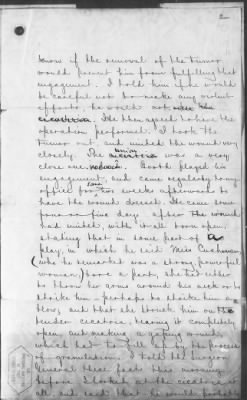 2
know if the removal of the tumor
would prevent him from fulfilling that
engagement. I told him if he would
be careful not to make any violent
efforts, he would not
cicatrix. He then agreed to have the
operation performed. I took the
tumor out, and united the wound very
closely. The cicatrix was a very
union
close one. Booth played his
engagement, and came regularly to my
office for two weeks afterwards to
have the wound dressed. He came some
four or five days after the wound
had united, with it all torn open,
stating that in some part of a
play, in which he and Miss Cushman
(who he remarked was a strong powerful
woman) bore a part, she had either
to throw her arms around his neck or to
strike him - perhaps to strike him a
blow, and that she struck him on the
tender cicatrix, tearing it completely
open, and making a gaping wound,
which had to fill up by the process
of granulation. I told the Surgeon
General these facts this morning
before I looked at the cicatrix at
all and said that he would probably